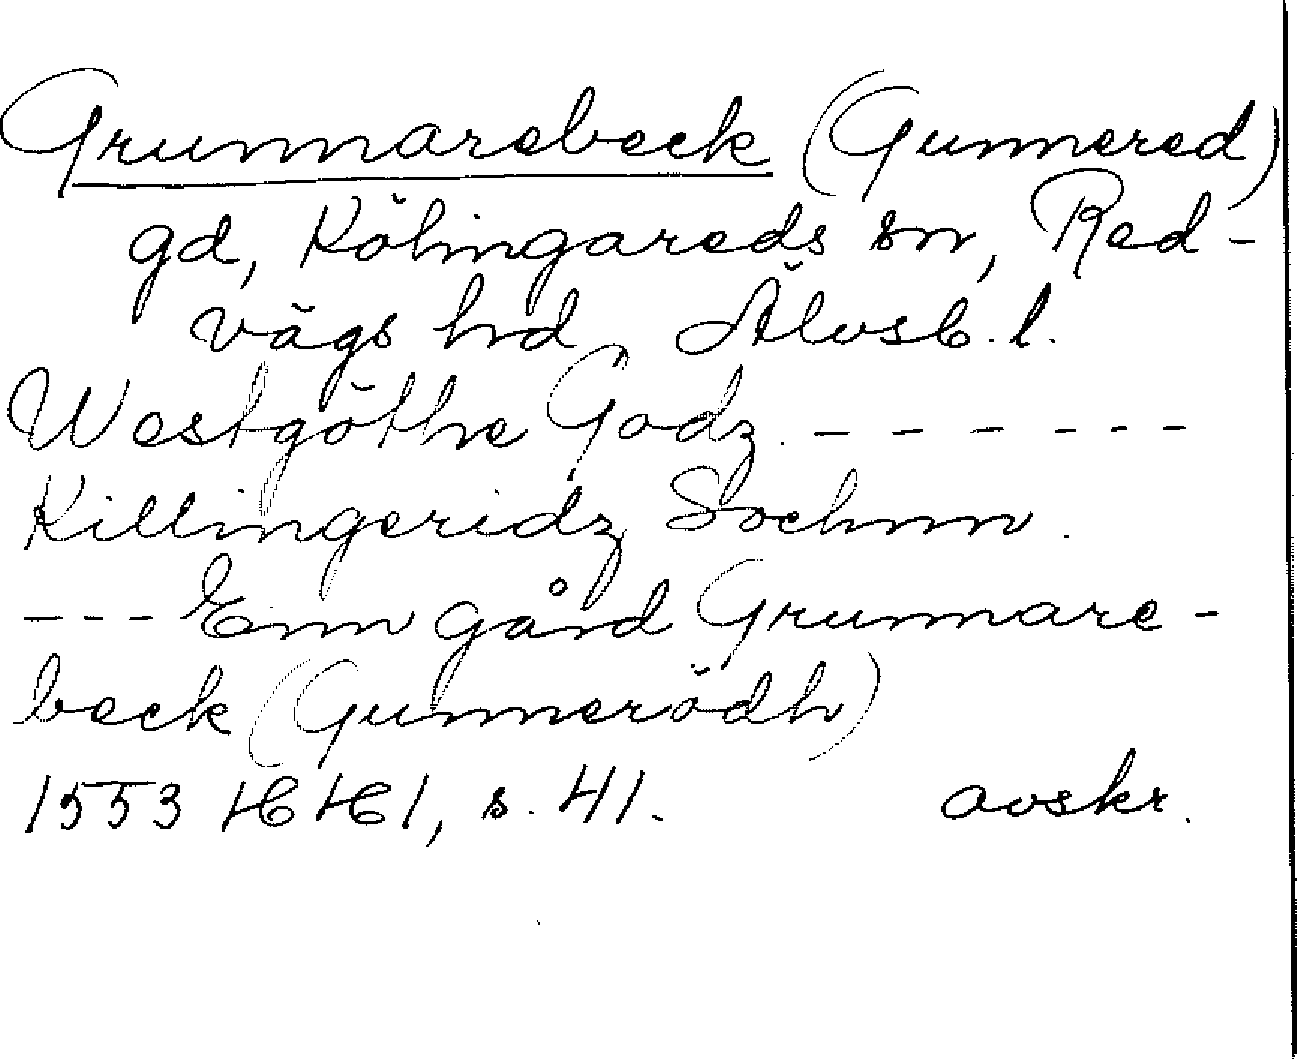 Grunnarebeck (Gunnered)
gd, Kölingareds sn, Red-
vägs hd, Älvsb. l.
Westgöthe Godz. - - - - - -
Killingeridz Sochnn.
- - - Enn gård Grunnare-
beck (Gunnerödh)
1553 HH 1, s. 41. avskr.